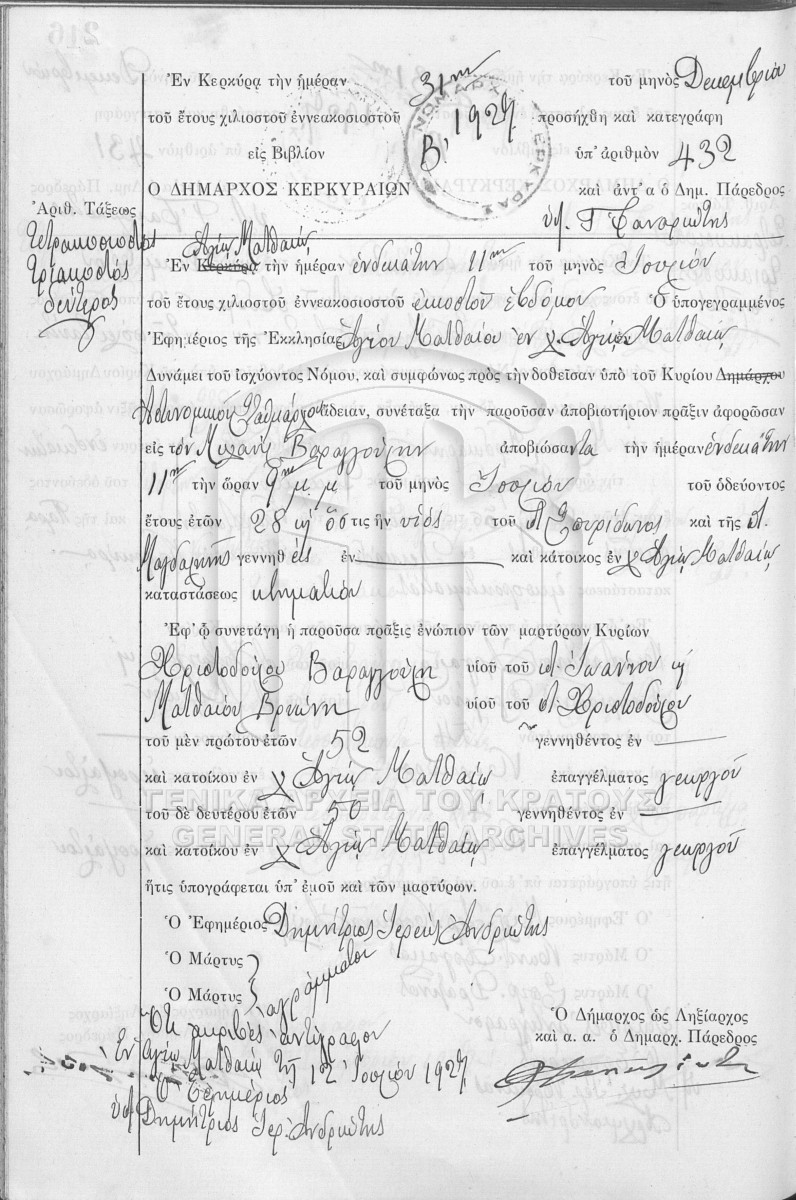 Ἐν Κερκύρᾳ τὴν ἡμέραν 31ην τοῦ μηνὸς Δεκεμβρίου
τοῦ ἔτους χιλιοστοῦ ἐννεακοσιοστοῦ 1927 προσήχθη καὶ κατεγράφη
εἰς Βιβλίον Β' ὑπ' ἀριθμὸν 432
Ο ΔΗΜΑΡΧΟΣ ΚΕΡΚΥΡΑΙΩΝ καὶ ἀντ' α ὁ Δημ. Πάρεδρος
Ἀριθ. Τάξεως
τετρακοσιοστὸς
τριακοστὸς
δεύτερος
Ἁγίῳ Ματθαίῳ
Ἐν Κερκύρᾳ τὴν ἡμέραν ἑνδεκάτην 11ην τοῦ μηνὸς Ἰουλίου
τοῦ ἔτους χιλιοστοῦ ἐννεακοσιοστοῦ εἰκοστοῦ ἑβδόμου Ὁ ὑπογεγραμμένος
Ἐφημέριος τῆς Ἐκκλησίας Ἁγίου Ματθαίου ἐν χ Ἁγίῳ Ματθαίῳ
Δυνάμει τοῦ ἰσχύοντος Νόμου, καὶ συμφώνως πρὸς τὴν δοθεῖσαν ὑπὸ τοῦ Κυρίου Δημάρχου
Ἀστυνομικοῦ Σταθμάρχου ἄδειαν, συνέταξα τὴν παροῦσαν ἀποβιωτήριον πρᾶξιν ἀφορῶσαν
εἰς τὸν Μιχαὴλ Βαραγγούλην ἀποβιώσαντα τὴν ἡμέραν ἑνδεκάτην
11ην τὴν ὥραν 9ην μ.μ τοῦ μηνὸς Ἰουλίου τοῦ ὁδεύοντος
ἔτους ἐτῶν 28 ὅστις ἦν υἱὸς τοῦ Σπυρίδωνος καὶ τῆς
Μαγδαληνῆς γεννηθεὶς ἐν καὶ κάτοικος ἐν χ Ἁγίῳ Ματθαίῳ
καταστάσεως κτηματίου
Ἐφ' ᾧ συνετάγη ἡ παροῦσα πρᾶξις ἐνώπιον τῶν μαρτύρων Κυρίων
Χριστοδούλου Βαραγγούλη υἱοῦ τοῦ Ἰωάννου
Ματθαίου Βρυώνη υἱοῦ τοῦ Χριστοδούλου
τοῦ μὲν πρώτου ἐτῶν 52 γεννηθέντος ἐν
καὶ κατοίκου ἐν χ Ἁγίῳ Ματθαίῳ ἐπαγγέλματος γεωργοῦ
ΓΕΝΙΚΑ ΑΡΧΕΙΑ ΤΟΥ ΚΡΑΤΟΥΣ
τοῦ δὲ δευτέρου ἐτῶν 50 γεννηθέντος ἐν
GENERAL STATE ARCHIVES
καὶ κατοίκου ἐν χ Ἁγίῳ Ματθαίῳ ἐπαγγέλματος γεωργοῦ
ἥτις ὑπογράφεται ὑπ' ἐμοῦ καὶ τῶν μαρτύρων.
Ὁ Ἐφημέριος Δημήτριος Ἱερεὺς Ἀνδριώτης
Ὁ Μάρτυς
Ὁ Μάρτυς ἀγράμματοι
Ὅτι ἀκριβὲς ἀντίγραφον
Ἐν Ἁγίῳ Ματθαίῳ τῇ 12 Ἰουλίου 1927
Ὁ Ἐφημέριος
Δημήτριος Ἱερ. Ἀνδριώτης
Ὁ Δήμαρχος ὡς Ληξίαρχος
καὶ α. α. ὁ Δημαρχ. Πάρεδρος